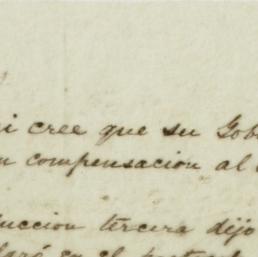 i cree que su Gob
n compensacion al
uccion tercera dijo
laró en el